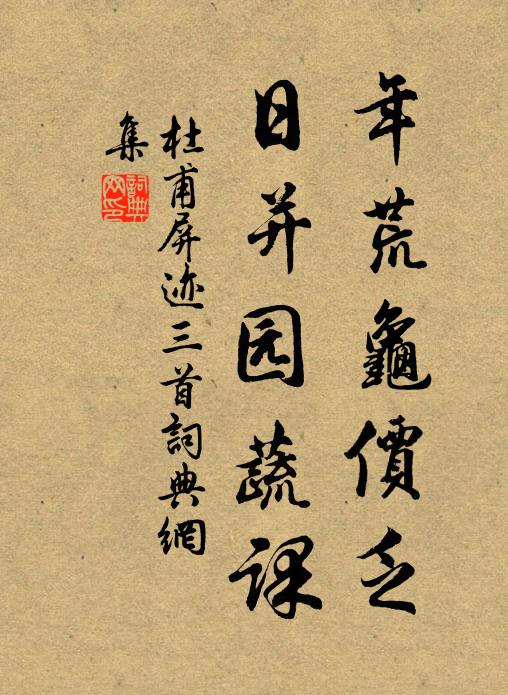 年荒龜價乏
日并园蔬课
杜甫屏迹三首詞典網
集
詞典
网印